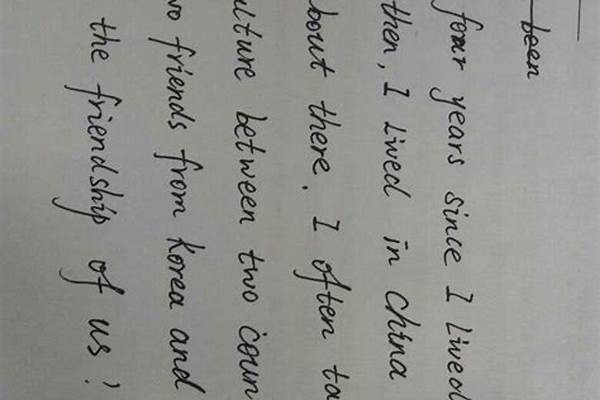 been
four years since I Lived
then, I Lived in China
bout there. I often ta
ulture between two coun
wo friends from Korea and
the friendship of us!